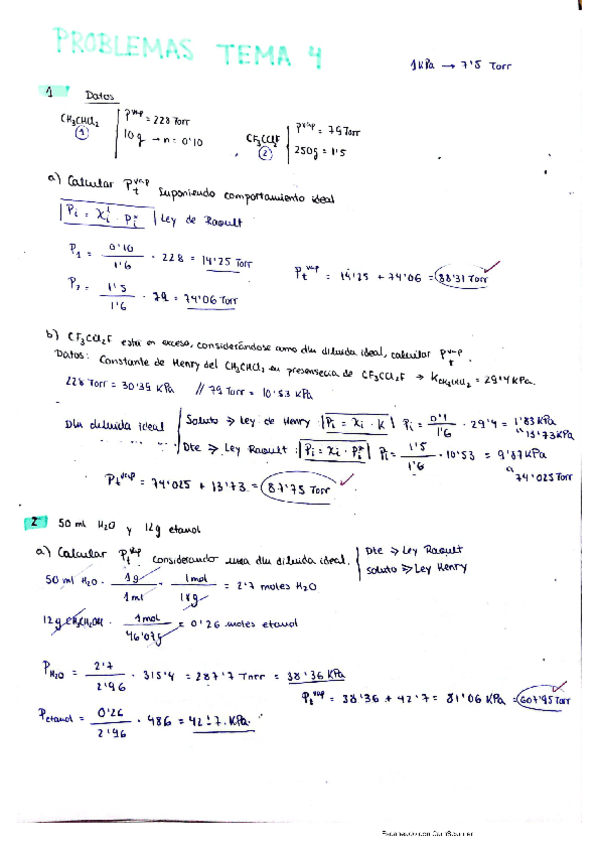 PROBLEMAS TEMA 4
1 KPa → 7'5 Torr
1 Datos
CH₃CHCl₂ ① P^vap = 228 Torr
10 g → n = 0'10
CF₃CCl₂F ② P^vap = 79 Torr
250g = 1'5
a) Calcular P_t^vap suponiendo comportamiento ideal
Pi = Xi^l · Pi* Ley de Raoult
P₁ = 0'10 / 1'6 · 228 = 14'25 Torr
P₂ = 1'5 / 1'6 · 79 = 74'06 Torr
P_t^vap = 14'25 + 74'06 = 88'31 Torr
b) CF₃CCl₂F está en exceso, considerándose como dln diluida ideal, calcular P_t^vap.
Datos: Constante de Henry del CH₃CHCl₂ en presencia de CF₃CCl₂F → K_CH₃CHCl₂ = 29'4 KPa.
228 Torr = 30'39 KPa // 79 Torr = 10'53 KPa
Dln diluida ideal
Soluto ⇒ Ley de Henry: Pi = Xi · K Pi = 0'1 / 1'6 · 29'4 = 1'83 KPa
13'73 KPa
Dte ⇒ Ley Raoult: Pi = Xi · Pi* Pi = 1'5 / 1'6 · 10'53 = 9'87 KPa
74'025 Torr
P_t^vap = 74'025 + 13'73 = 87'75 Torr
2 50 ml H₂O y 12g etanol
a) Calcular P_t^vap considerando una dln diluida ideal.
Dte ⇒ Ley Raoult
soluto ⇒ Ley Henry
50 ml H₂O · 1g / 1ml · 1mol / 18g = 2'7 moles H₂O
12g CH₃CH₂OH · 1mol / 46'07g = 0'26 moles etanol
P_H₂O = 2'7 / 2'96 · 315'4 = 287'7 Torr = 38'36 KPa
P_t^vap = 38'36 + 42'7 = 81'06 KPa = 607'95 Torr
P_etanol = 0'26 / 2'96 · 486 = 42'7 KPa.